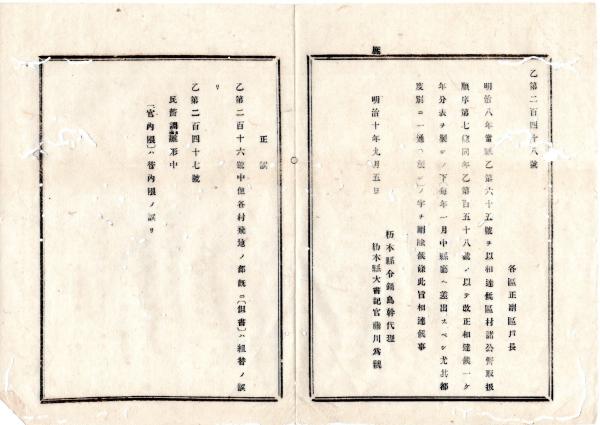 乙第二百四十八號
各區正副區戶長
明治八年當縣乙第六十五號ヲ以相達候區村諸公費取扱
順序第七條同年乙第百五十八號ヲ以テ改正相達候一ケ
年分表ヲ製シノ下每年一月中縣廳ヘ差出スヘシ尤其都
度別ニ一通ノ字ヲ刪除候條此旨相達候事
明治十年九月五日
栃木縣令鍋島幹代理
栃木縣大書記官藤川爲親
正誤
乙第二百十六號中但各村飛地ノ部既ニ(但書)ハ組替ノ誤
リ
乙第二百四十七號
民費調雛形中
(官內限)ハ管內限ノ誤リ